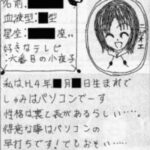 名前:
血液型: 型
星座: 座。。
好きなテレビ
六番目の小夜子
私はH4年 月 日生まれで
しゅみはパソコンでーす
性格は裏と表があるらしい‥‥。
得意な事はパソコンの
早打ちです!でもおそい‥‥